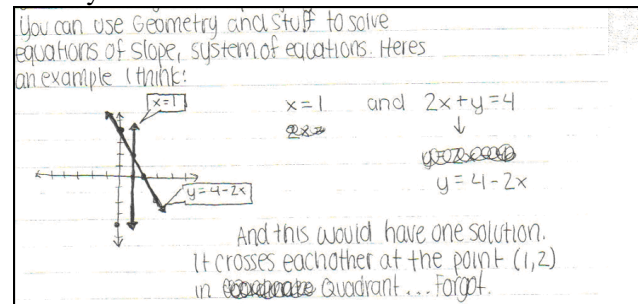 You can use Geometry and stuff to solve
equations of slope, system of equations. Heres
an example I think:
x=1
x=1 and 2x+y=4
y=4-2x
y=4-2x
And this would have one solution.
It crosses eachother at the point (1,2)
in Quadrant... Forgot.